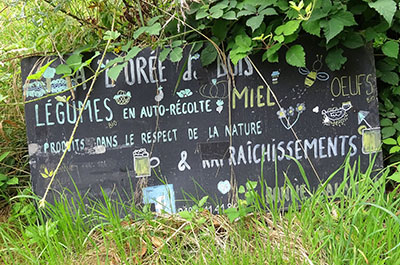 À L'ORÉE du BOIS
LÉGUMES EN AUTO-RÉCOLTE MIEL OEUFS
PRODUITS DANS LE RESPECT DE LA NATURE
& RAFRAÎCHISSEMENTS